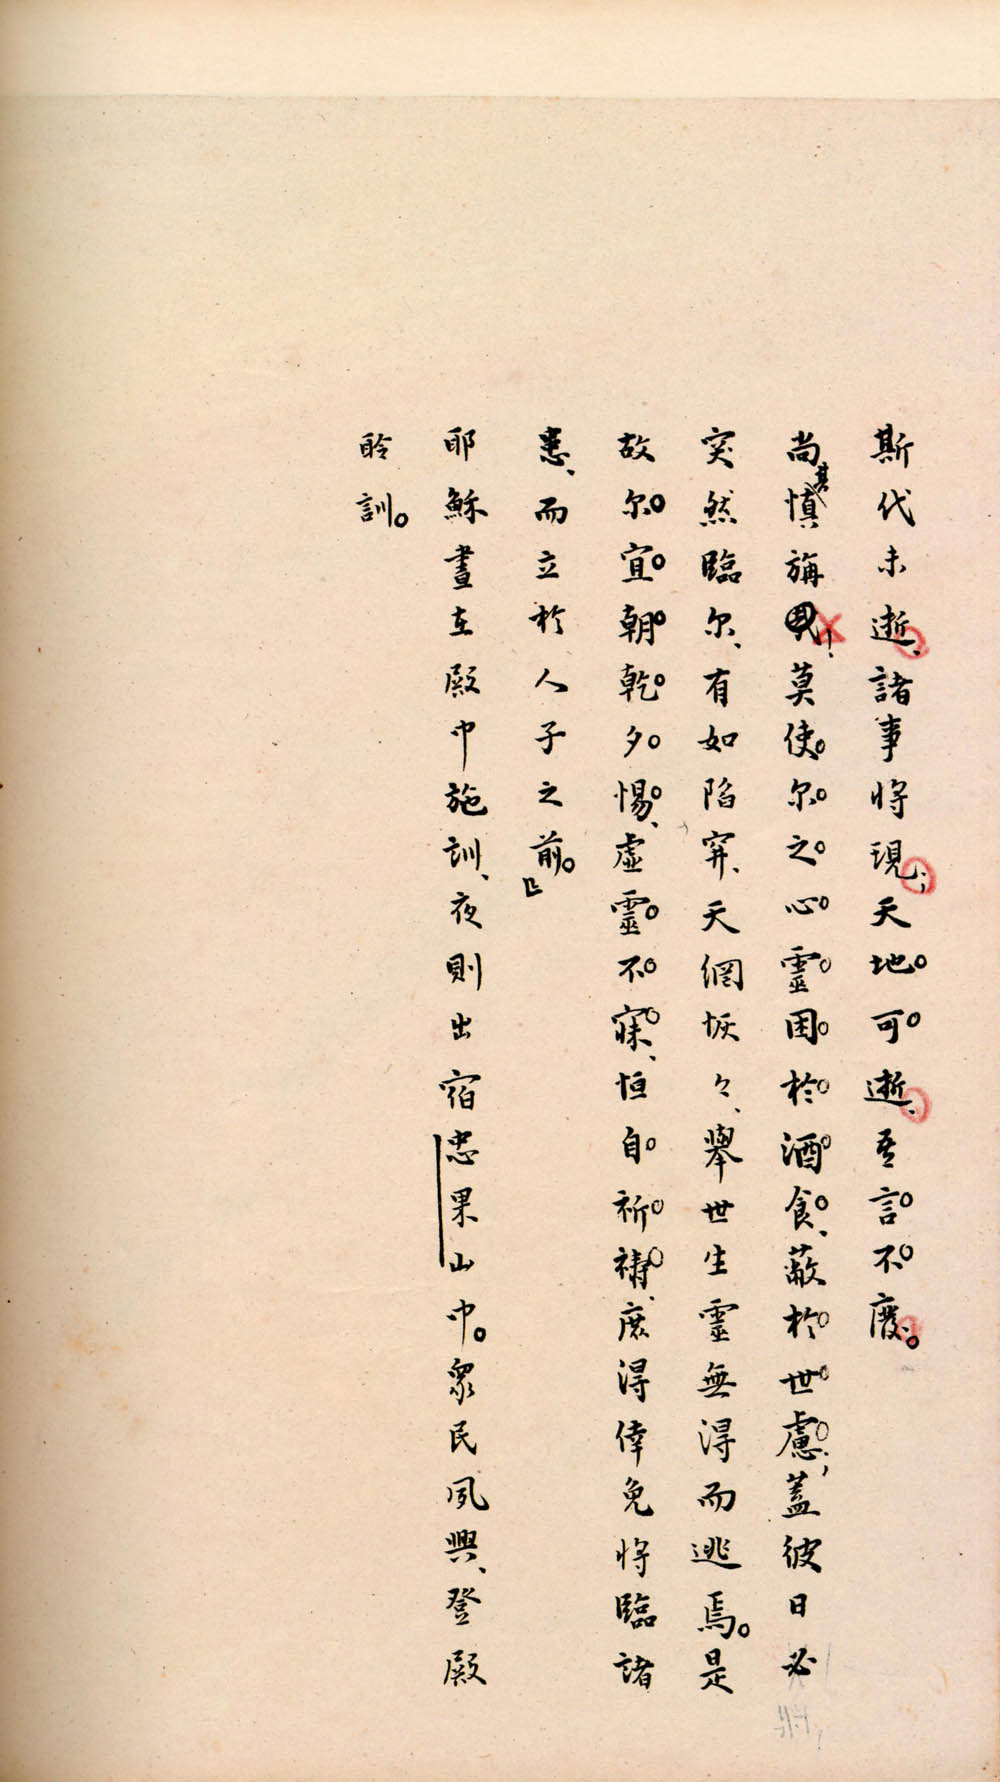 斯代未逝、諸事將現；天地可逝、吾言不廢。
尚其慎旃！莫使尔之心靈困於酒食、蔽於世慮；蓋彼日必
突然臨尔、有如陷穽、天網恢々、舉世生靈無得而逃焉。是
故尔宜朝乾夕惕、虛靈不寐、恒自祈禱、庶得倖免將臨諸
恚、而立於人子之前。」
耶穌晝在殿中施訓、夜則出宿忠果山中。眾民夙興、登殿
聆訓。